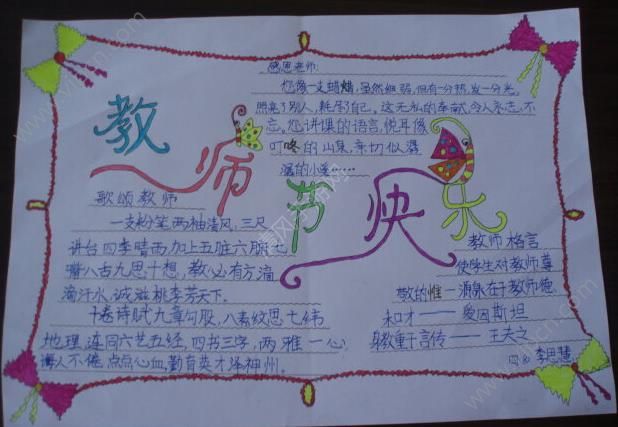 教师节快乐
感恩老师:
您像一支蜡蜡,虽然细弱,但有一分热,发一分光,
照亮了别人,耗尽了自己。这无私的奉献,令人永志不
忘。您讲课的语言,悦耳像
叮咚的山泉,亲切似潺
潺的小溪……
歌颂教师
一支粉笔两袖清风,三尺
讲台四季晴雨,加上五脏六腑七
嘴八舌九思十想,教必有方滴
滴汗水,诚滋桃李芳天下。
十卷诗赋九章勾股,八索文思七纬
地理,连同六艺五经,四书三字,两雅一心,
诲人不倦,点点心血,勤育英才泽神州。
教师格言
使学生对教师尊
敬的惟一源泉在于教师德
和才——爱因斯坦
身教重于言传——王夫之
李思慧